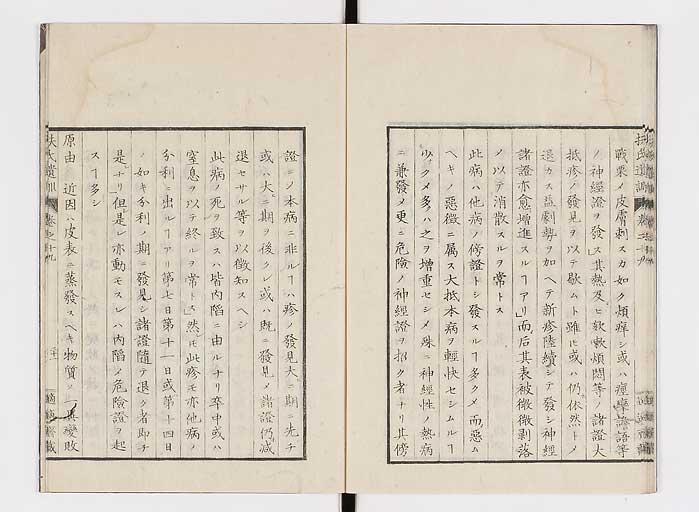 戰栗メ皮膚刺スカ如ク煩痒シ或ハ痙攣譫語等
ノ神經證ヲ發シ其熱及ヒ欬嗽煩悶等ノ諸證大
抵疹ノ發見ヲ以テ歇ムト雖ヒ或ハ仍依然トメ
退カス益劇勢ヲ加ヘテ新疹陸續シテ發シ神經
諸證亦愈增進スルヿアリ而后其表被微微剥落
ノ以テ消散スルヲ常トス
此病ハ他病ノ傍證トシ發スルヿ多クメ而惡ム
ヘキノ惡徴ニ属ス大抵本病ヲ輕快セシムルヿ
少クメ多クハ之ヲ增重セシメ殊ニ神經性ノ熱病
ニ兼發メ更ニ危險ノ神經證ヲ招ク者ナリ其傍
證ニノ本病ニ非ルヿハ疹ノ發見大ニ期ニ先チ
或ハ大ニ期ヲ後クレ或ハ既ニ發見メ諸證仍減
退セサル等ヲ以徴知スヘシ
此病ノ死ヲ致スハ皆内陷ニ由ルナリ卒中或ハ
窒息ヲ以テ終ルヲ常トス然ヒ此疹モ亦他病ノ
分利ニ出ルヿアリ第七日第十一日或第十四日
ノ如キ分利ノ期ニ發見シ諸證隨テ退ク者即チ
是ナリ但是レ亦動モスレハ内陷ノ危險證ヲ起
スヿ多シ
原由 近因ハ皮表ニ蒸發スヘキ物質ノ一異變敗
扶氏遺訓 卷之十九